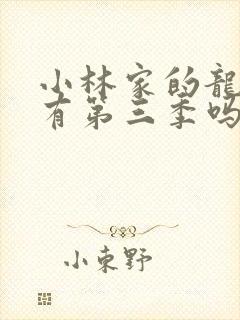 小林家的龍
有第三季吗
小束野